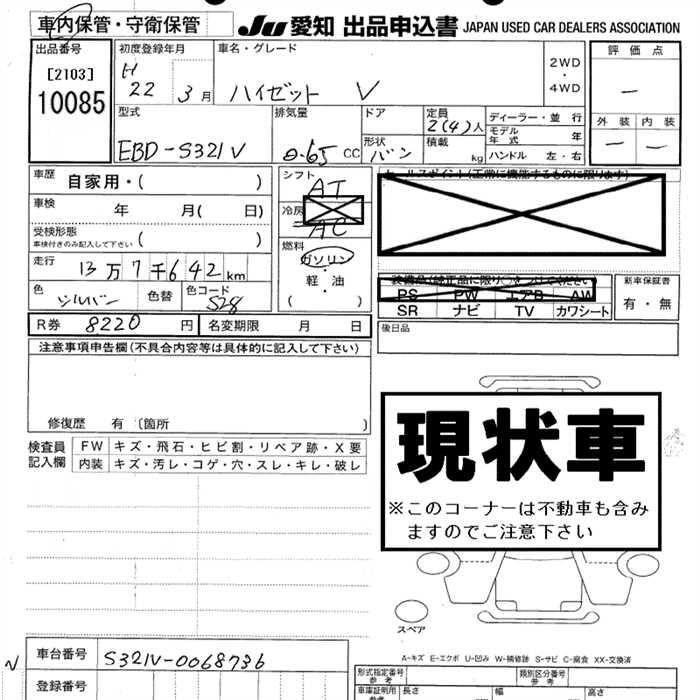 車内保管・守衛保管 JU 愛知 出品申込書 JAPAN USED CAR DEALERS ASSOCIATION
出品番号 初度登録年月 車名・グレード 2WD・4WD 評価点
[2103]
10085
H22 3月 ハイゼット V —
型式 排気量 ドア 定員 2(4)人 ディーラー・並行 外装 内装
EBD-S321V 0.65 CC 形状 バン 積載 kg モデル年式 年 — —
ハンドル 左・右
車歴 自家用・( ) シフト AT
車検 年 月( 日) 冷房 AC
受検形態 ( )
車検付きのみ記入して下さい
燃料 ガソリン・軽油 ( )
走行 13万7千642km
色 シルバー 色替 色コード S28
セールスポイント(正常に機能するものに限ります)
PS PW エアB AW
SR ナビ TV カワシート
新車保証書
有・無
R券 8220円 名変期限 月 日 後日品
注意事項申告欄(不具合内容等は具体的に記入して下さい)
修復歴 有 〔箇所 〕
検査員記入欄 FW キズ・飛石・ヒビ割・リペア跡・X要
内装 キズ・汚レ・コゲ・穴・スレ・キレ・破レ
現状車
※このコーナーは不動車も含み
ますのでご注意下さい
スペア
A-キズ E-エクボ U-凹み W-補修跡 S-サビ C-腐食 XX-交換済
車台番号 S321V-0068736
登録番号
型式指定番号 類別区分番号
車庫証明用 長さ 幅 高さ